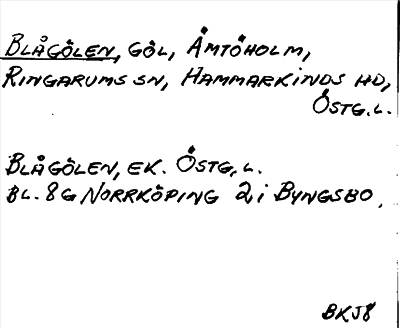 BLÅGÖLEN, GÖL, ÅMTÖHOLM,
RINGARUMS SN, HAMMARKINDS HD,
ÖSTG.L.
BLÅGÖLEN, EK. ÖSTG.L.
BL. 8G NORRKÖPING 2i BYNGSBO.
BKJ8